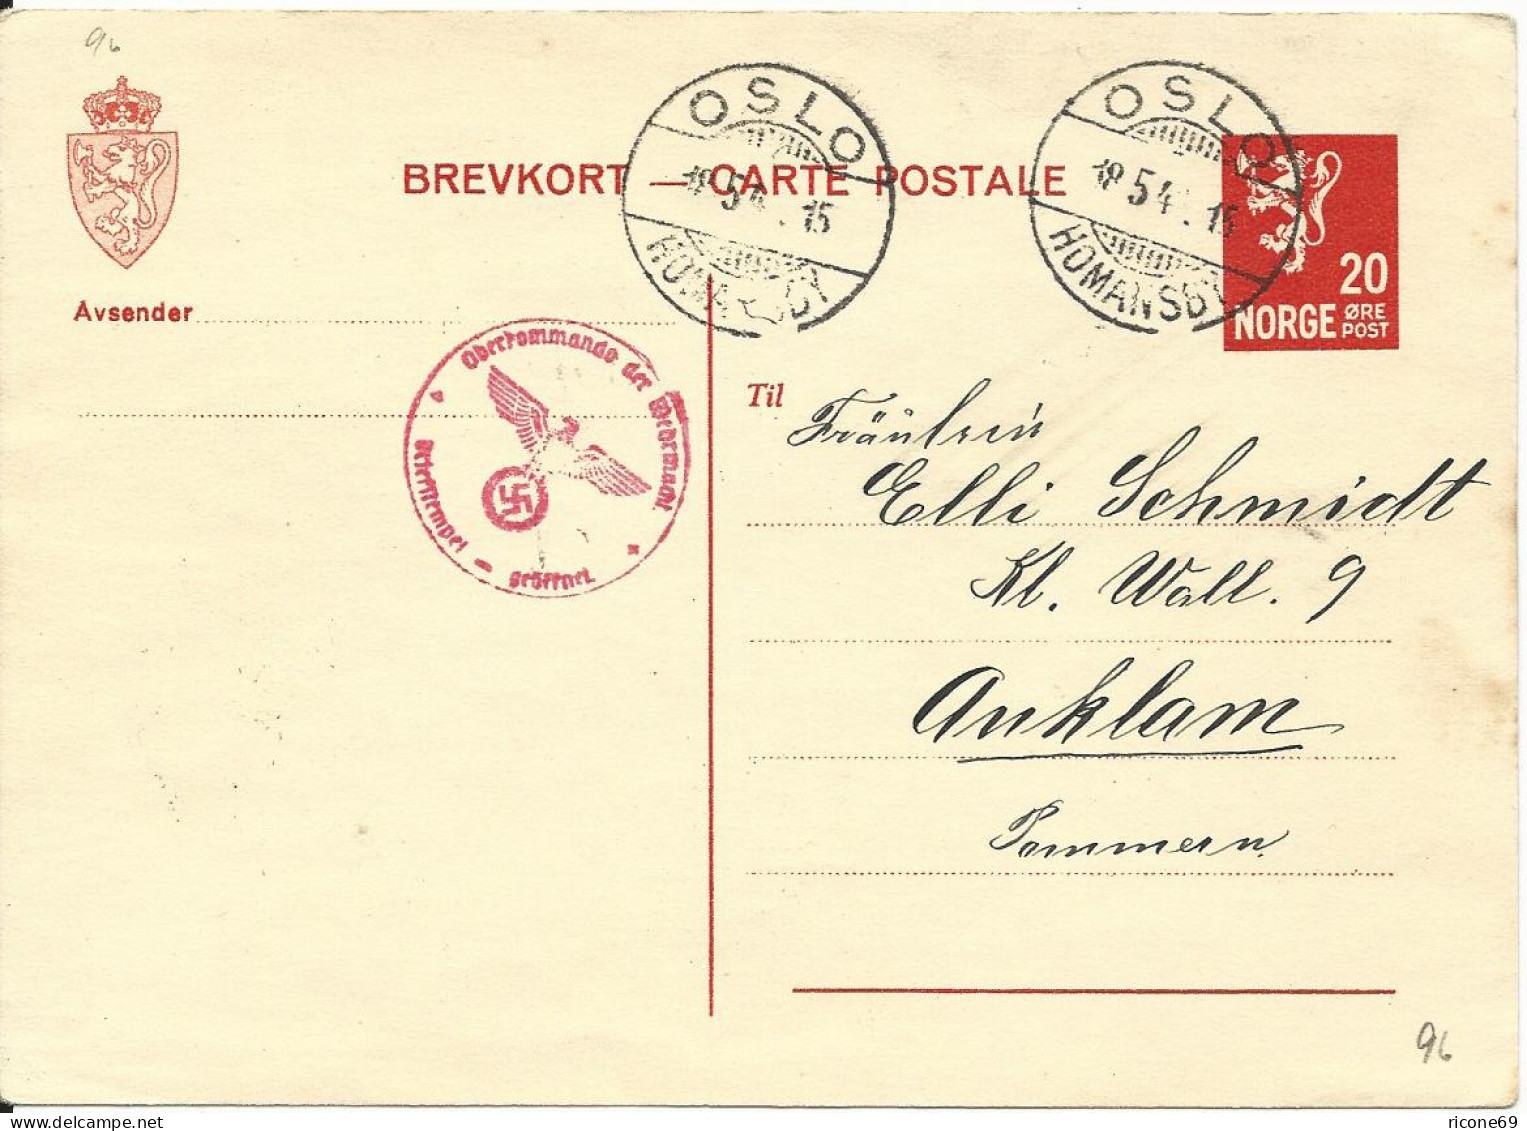 96
BREVKORT — CARTE POSTALE
OSLO
18 5 4 . 15
HOMANSBY
OSLO
18 5 4 . 15
HOMANSBY
20
NORGE ØRE POST
Avsender
Oberkommando der Wehrmacht
geöffnet
Til
Fräulein
Elli Schmidt
Kl. Wall. 9
Anklam
Pommern
96
ricone69